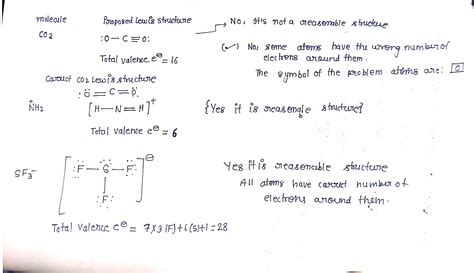 molecule Proposed Lewis structure → No, It's not a reasonable structure
CO2 :O—C≡O:
(✓) No, some atoms have the wrong number of
electrons around them.
Total valence e⊖ = 16
The symbol of the problem atoms are: O
Correct CO2 Lewis structure
:Ö=C=Ö:
NH2 [H—N=H]+ {Yes it is reasonable structure}
Total valence e⊖ = 6
SF3- [:F—S—F: :F:]⊖ Yes it is reasonable structure
All atoms have correct number of
electrons around them.
Total valence e⊖ = 7×3(F)+6(S)+1=28